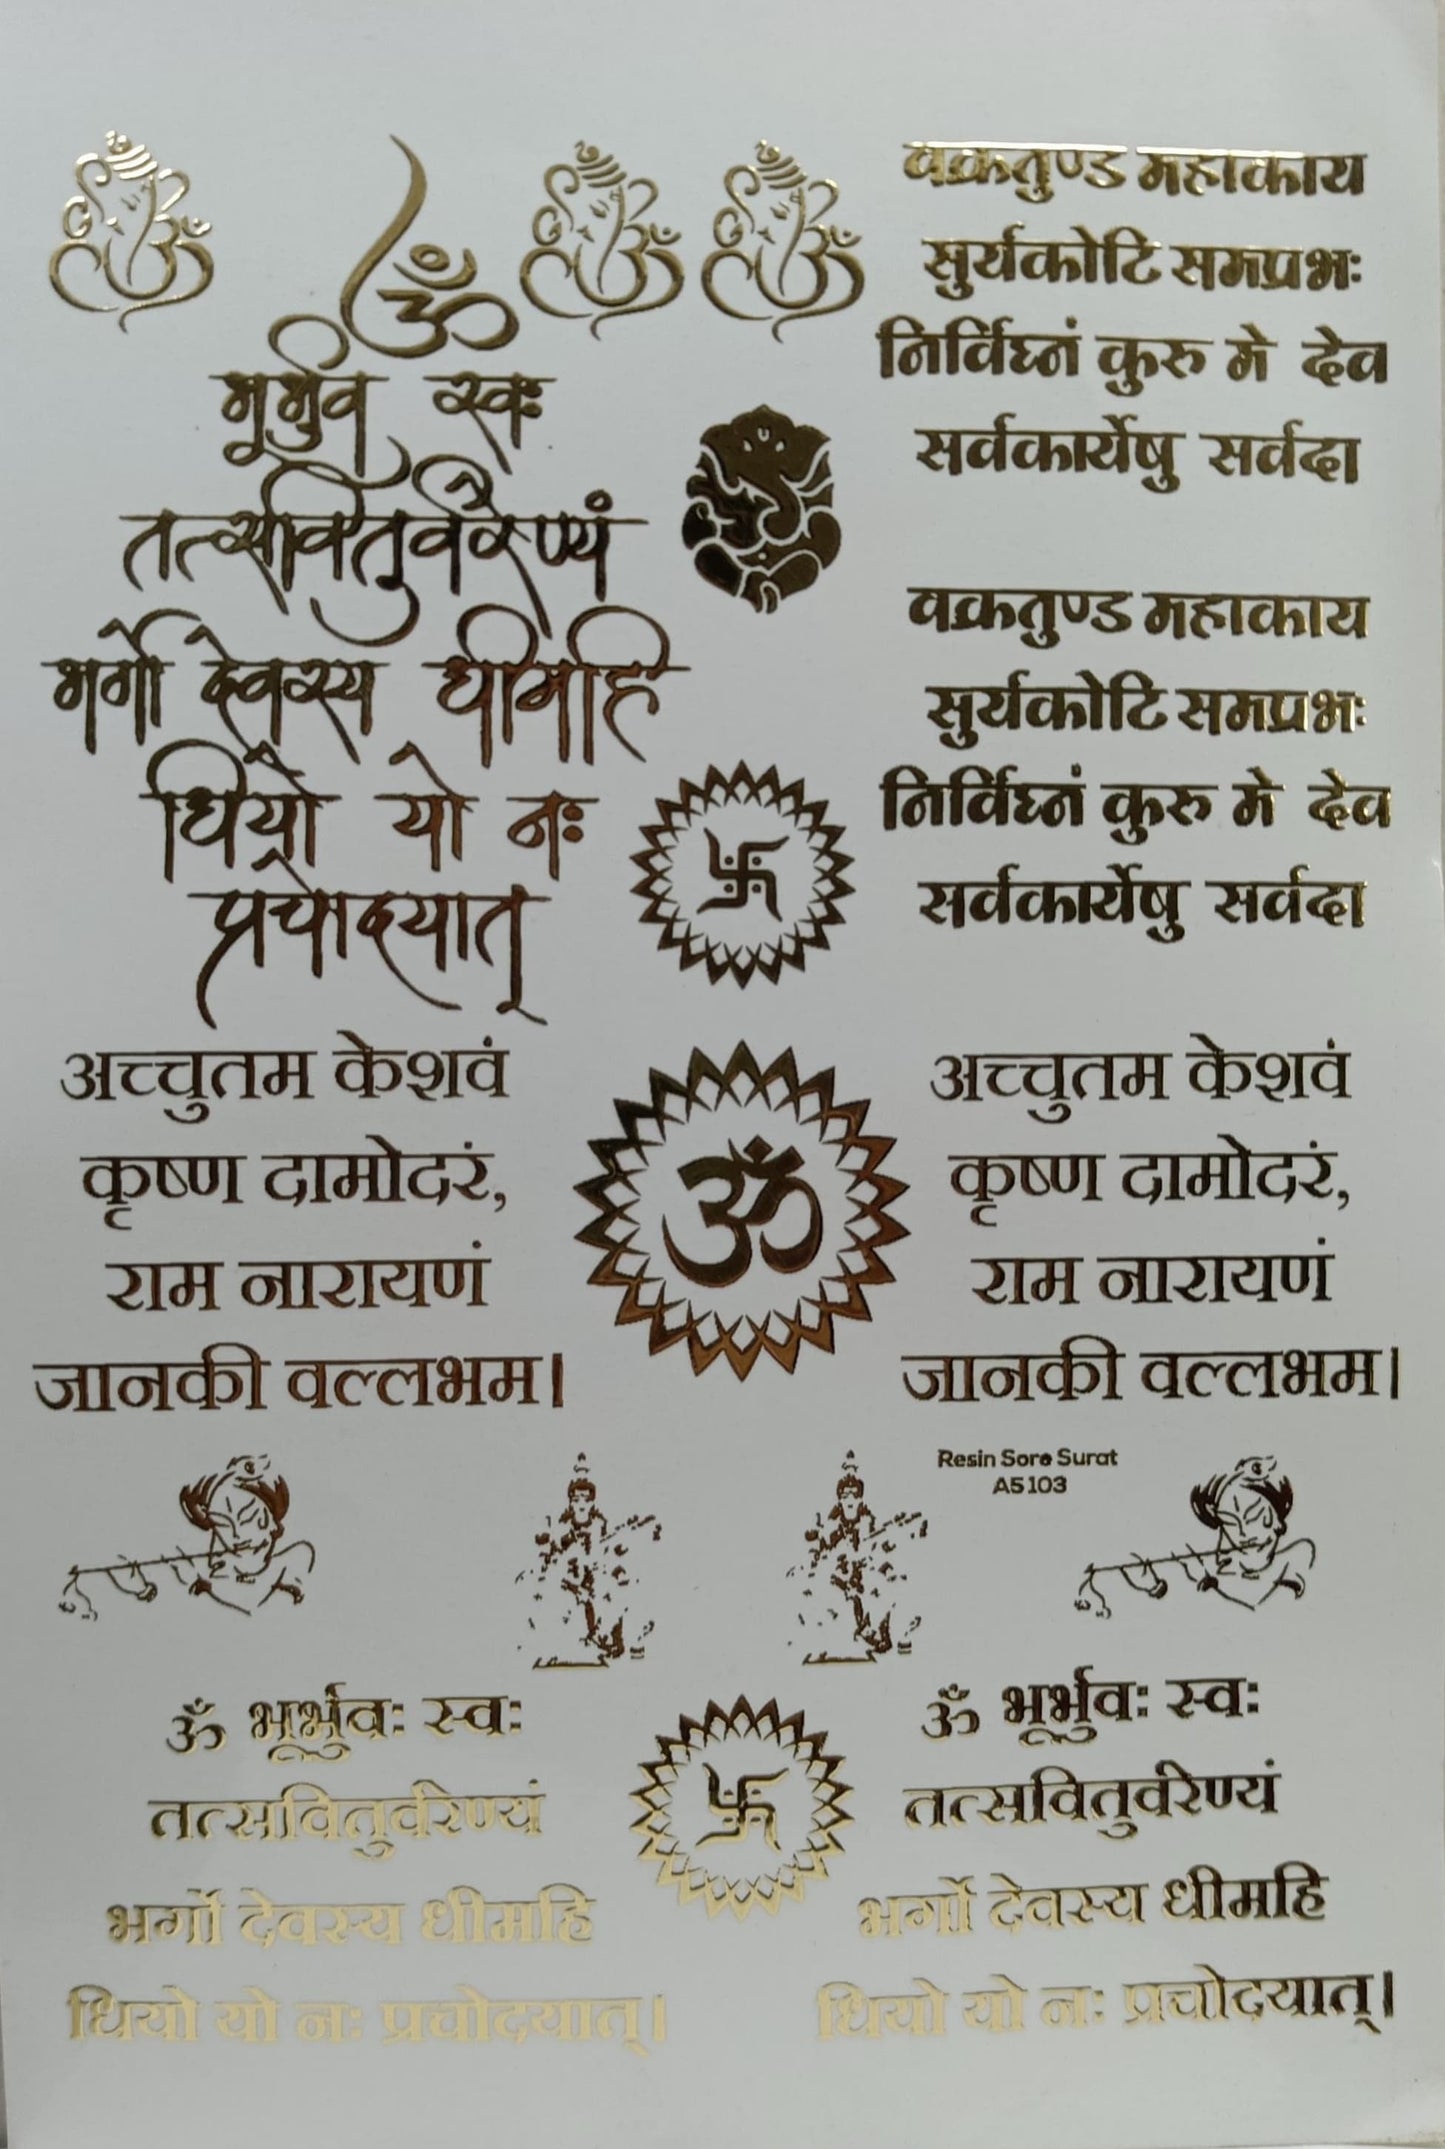 ॐ
भूर्भुव स्वः
तत्सवितुर्वरेण्यं
भर्गो देवस्य धीमहि
धियो यो नः
प्रचोदयात्
वक्रतुण्ड महाकाय
सुर्यकोटि समप्रभः
निर्विघ्नं कुरु मे देव
सर्वकार्येषु सर्वदा
वक्रतुण्ड महाकाय
सुर्यकोटि समप्रभः
निर्विघ्नं कुरु मे देव
सर्वकार्येषु सर्वदा
अच्चुतम केशवं
कृष्ण दामोदरं,
राम नारायणं
जानकी वल्लभम।
ॐ
अच्चुतम केशवं
कृष्ण दामोदरं,
राम नारायणं
जानकी वल्लभम।
Resin Sore Surat
A5 103
ॐ भूर्भुवः स्वः
तत्सवितुर्वरेण्यं
भर्गो देवस्य धीमहि
धियो यो नः प्रचोदयात्।
ॐ भूर्भुवः स्वः
तत्सवितुर्वरेण्यं
भर्गो देवस्य धीमहि
धियो यो नः प्रचोदयात्।